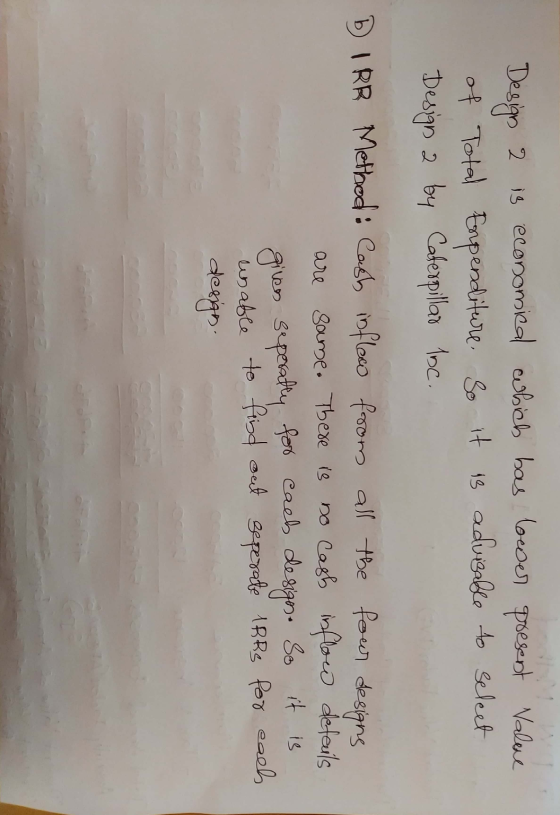 Design 2 is economical which has lower present Value
of Total Expenditure. So it is advisable to select
Design 2 by Caterpillar Inc.
b) IRR Method: Cash inflow from all the four designs
are same. There is no cash inflow details
given seperatly for each design. So it is
unable to find out seperate IRRs for each
design.